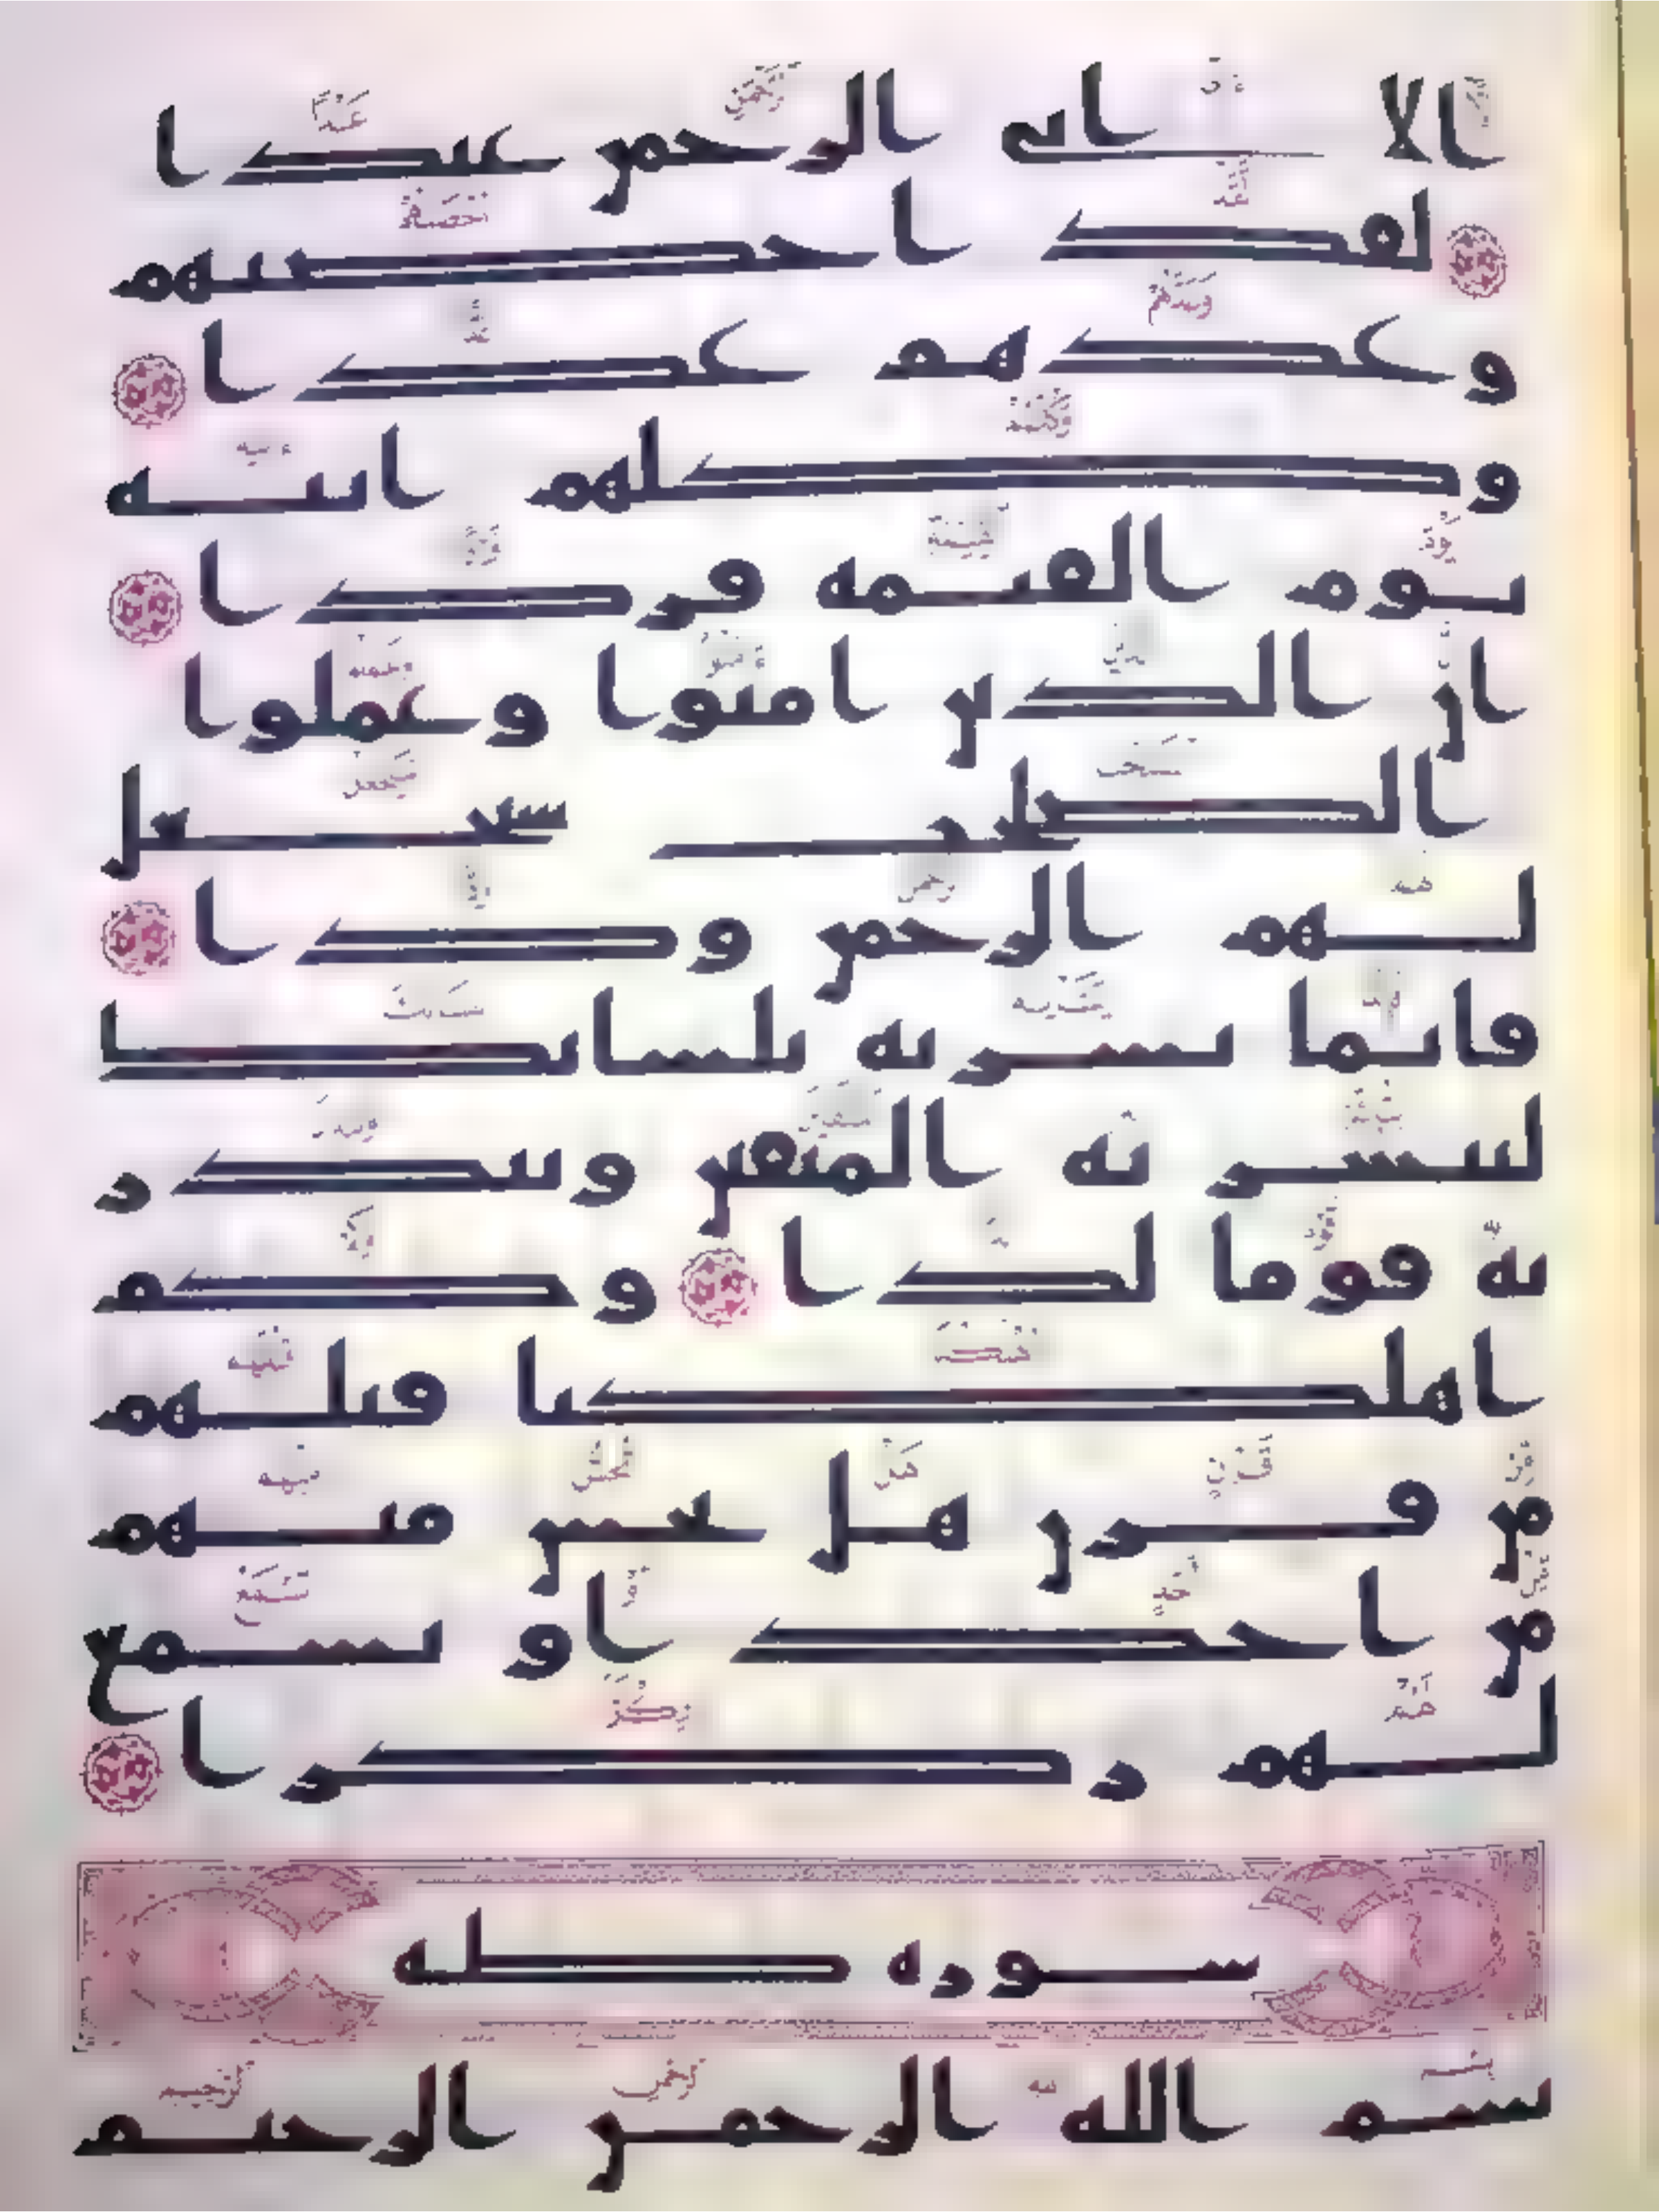 الا اتى الرحمن عبدا
لقد احصيهم
وعدهم عدا
وكلهم اتيه
يوم القيمة فردا
ان الذين امنوا وعملوا
الصلحت سيجعل
لهم الرحمن ودا
فانما يسرنه بلسانك
لتبشر به المتقين وتنذر
به قوما لدا وكم
اهلكنا قبلهم
من قرن هل تحس منهم
من احد او تسمع
لهم ركزا
سورة طه
بسم الله الرحمن الرحيم